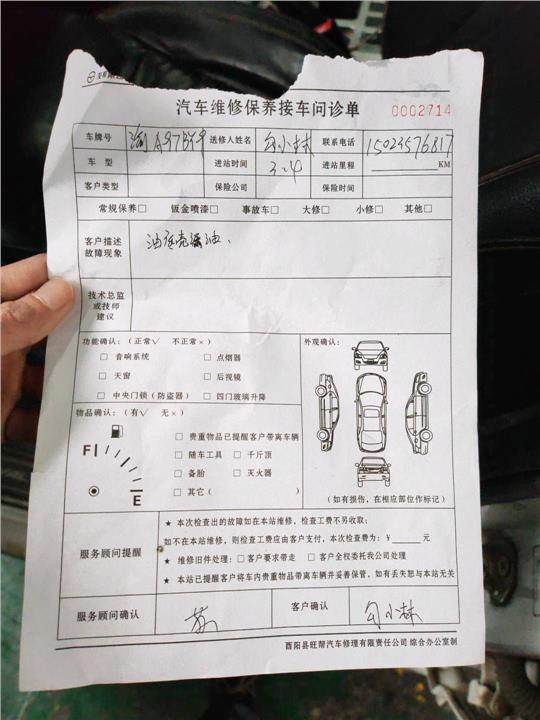 汽车维修保养接车问诊单 0002714
车牌号 渝A97B59 送修人姓名 勾小林 联系电话 15023576817
车型 进站时间 3.4 进站里程 ______KM
客户类型 保险公司 保险时间
常规保养□ 钣金喷漆□ 事故车□ 大修□ 小修□ 其他□
客户描述
故障现象
油底壳渗油、
技术总监
或技师
建议
功能确认:(正常√ 不正常×)
□ 音响系统 □ 点烟器
□ 天窗 □ 后视镜
□ 中央门锁(防盗器) □ 四门玻璃升降
外观确认:
(如有损伤,在相应部位作标记)
物品确认:(有√ 无×)
F
E
□ 贵重物品已提醒客户带离车辆
□ 随车工具 □ 千斤顶
□ 备胎 □ 灭火器
□ 其它( )
服务顾问提醒
★ 本次检查出的故障如在本站维修,检查工费不另收取;
如不在本站维修,则检查工费应由客户支付,本次检查费为:¥______元
★ 维修旧件处理:□ 客户要求带走 □ 客户全权委托我公司处理
★ 本站已提醒客户将车内贵重物品带离车辆并妥善保管,如有丢失恕与本站无关
服务顾问确认 客户确认 勾小林
酉阳县旺帮汽车修理有限责任公司 综合办公室制